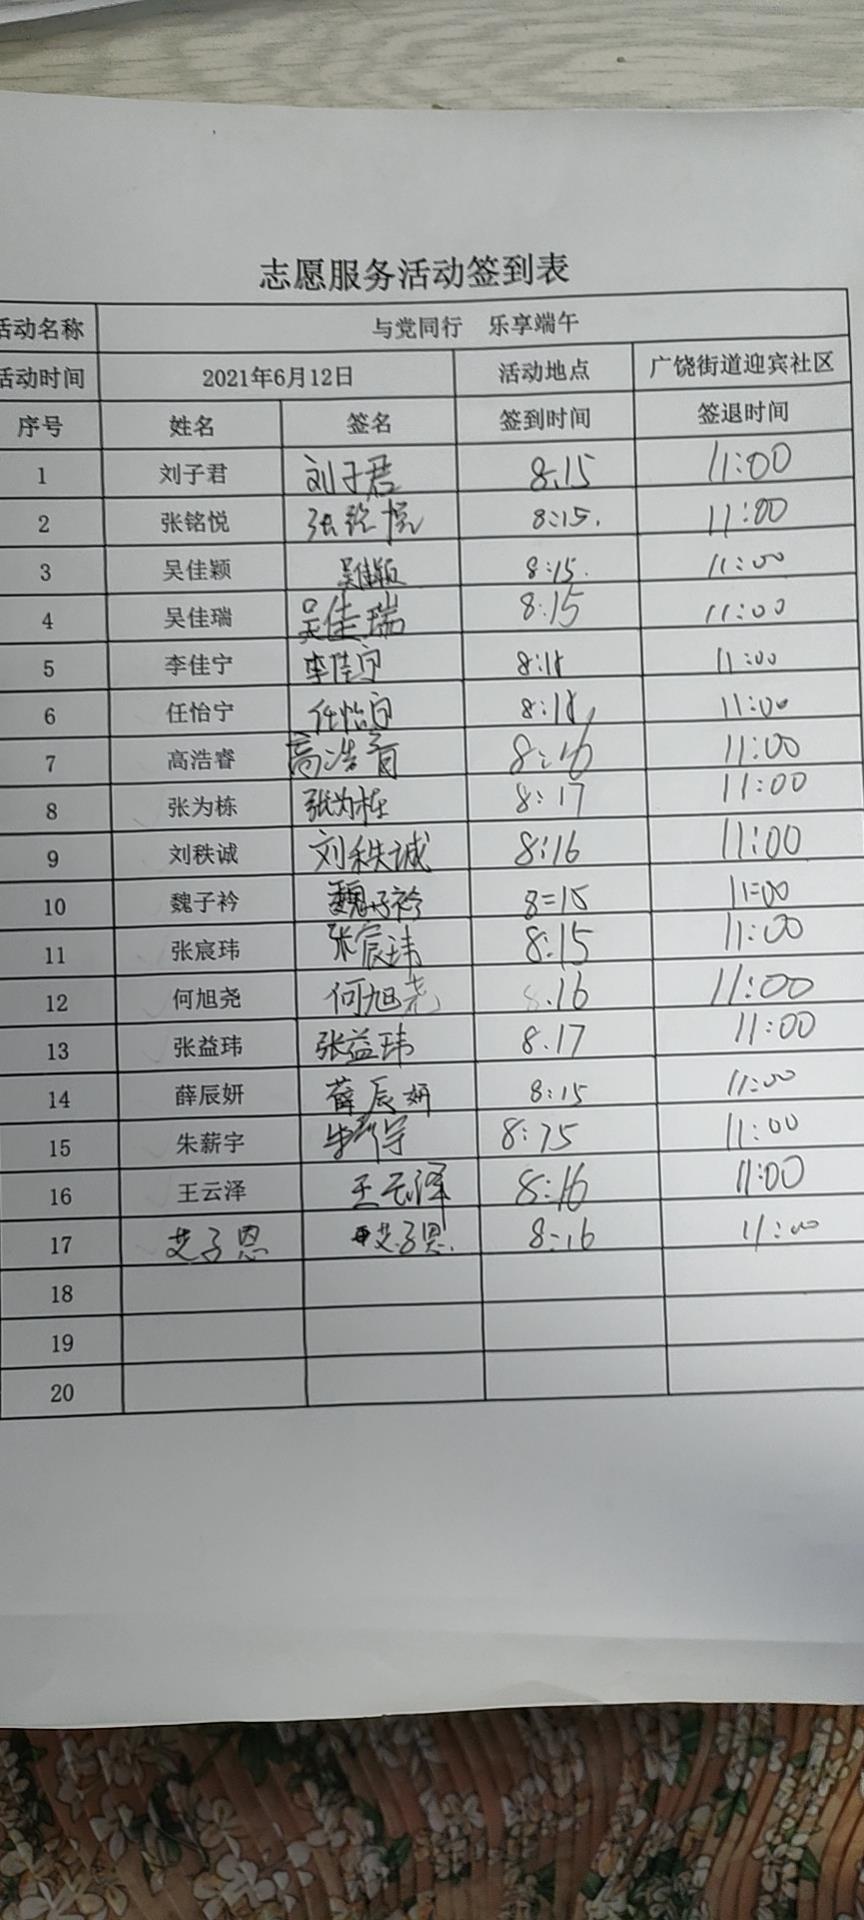 志愿服务活动签到表
活动名称 与党同行 乐享端午
活动时间 2021年6月12日 活动地点 广饶街道迎宾社区
序号 姓名 签名 签到时间 签退时间
1 刘子君 刘子君 8.15 11:00
2 张铭悦 张铭悦 8:15. 11:00
3 吴佳颖 吴佳颖 8:15. 11:00
4 吴佳瑞 吴佳瑞 8:15 11:00
5 李佳宁 李佳宁 8:18 11:00
6 任怡宁 任怡宁 8:18 11:00
7 高浩睿 高浩 8:16 11:00
8 张为栋 张为栋 8:17 11:00
9 刘秩诚 刘秩诚 8:16 11:00
10 魏子衿 魏子衿 8=15 11:00
11 张宸玮 张宸玮 8:15 11:00
12 何旭尧 何旭尧 8.16 11:00
13 张益玮 张益玮 8.17 11:00
14 薛辰妍 薛辰妍 8:15 11:00
15 朱薪宇 朱薪宇 8:15 11:00
16 王云泽 王云泽 8:16 11:00
17 艾子恩 艾子恩. 8:16 11:00
18
19
20